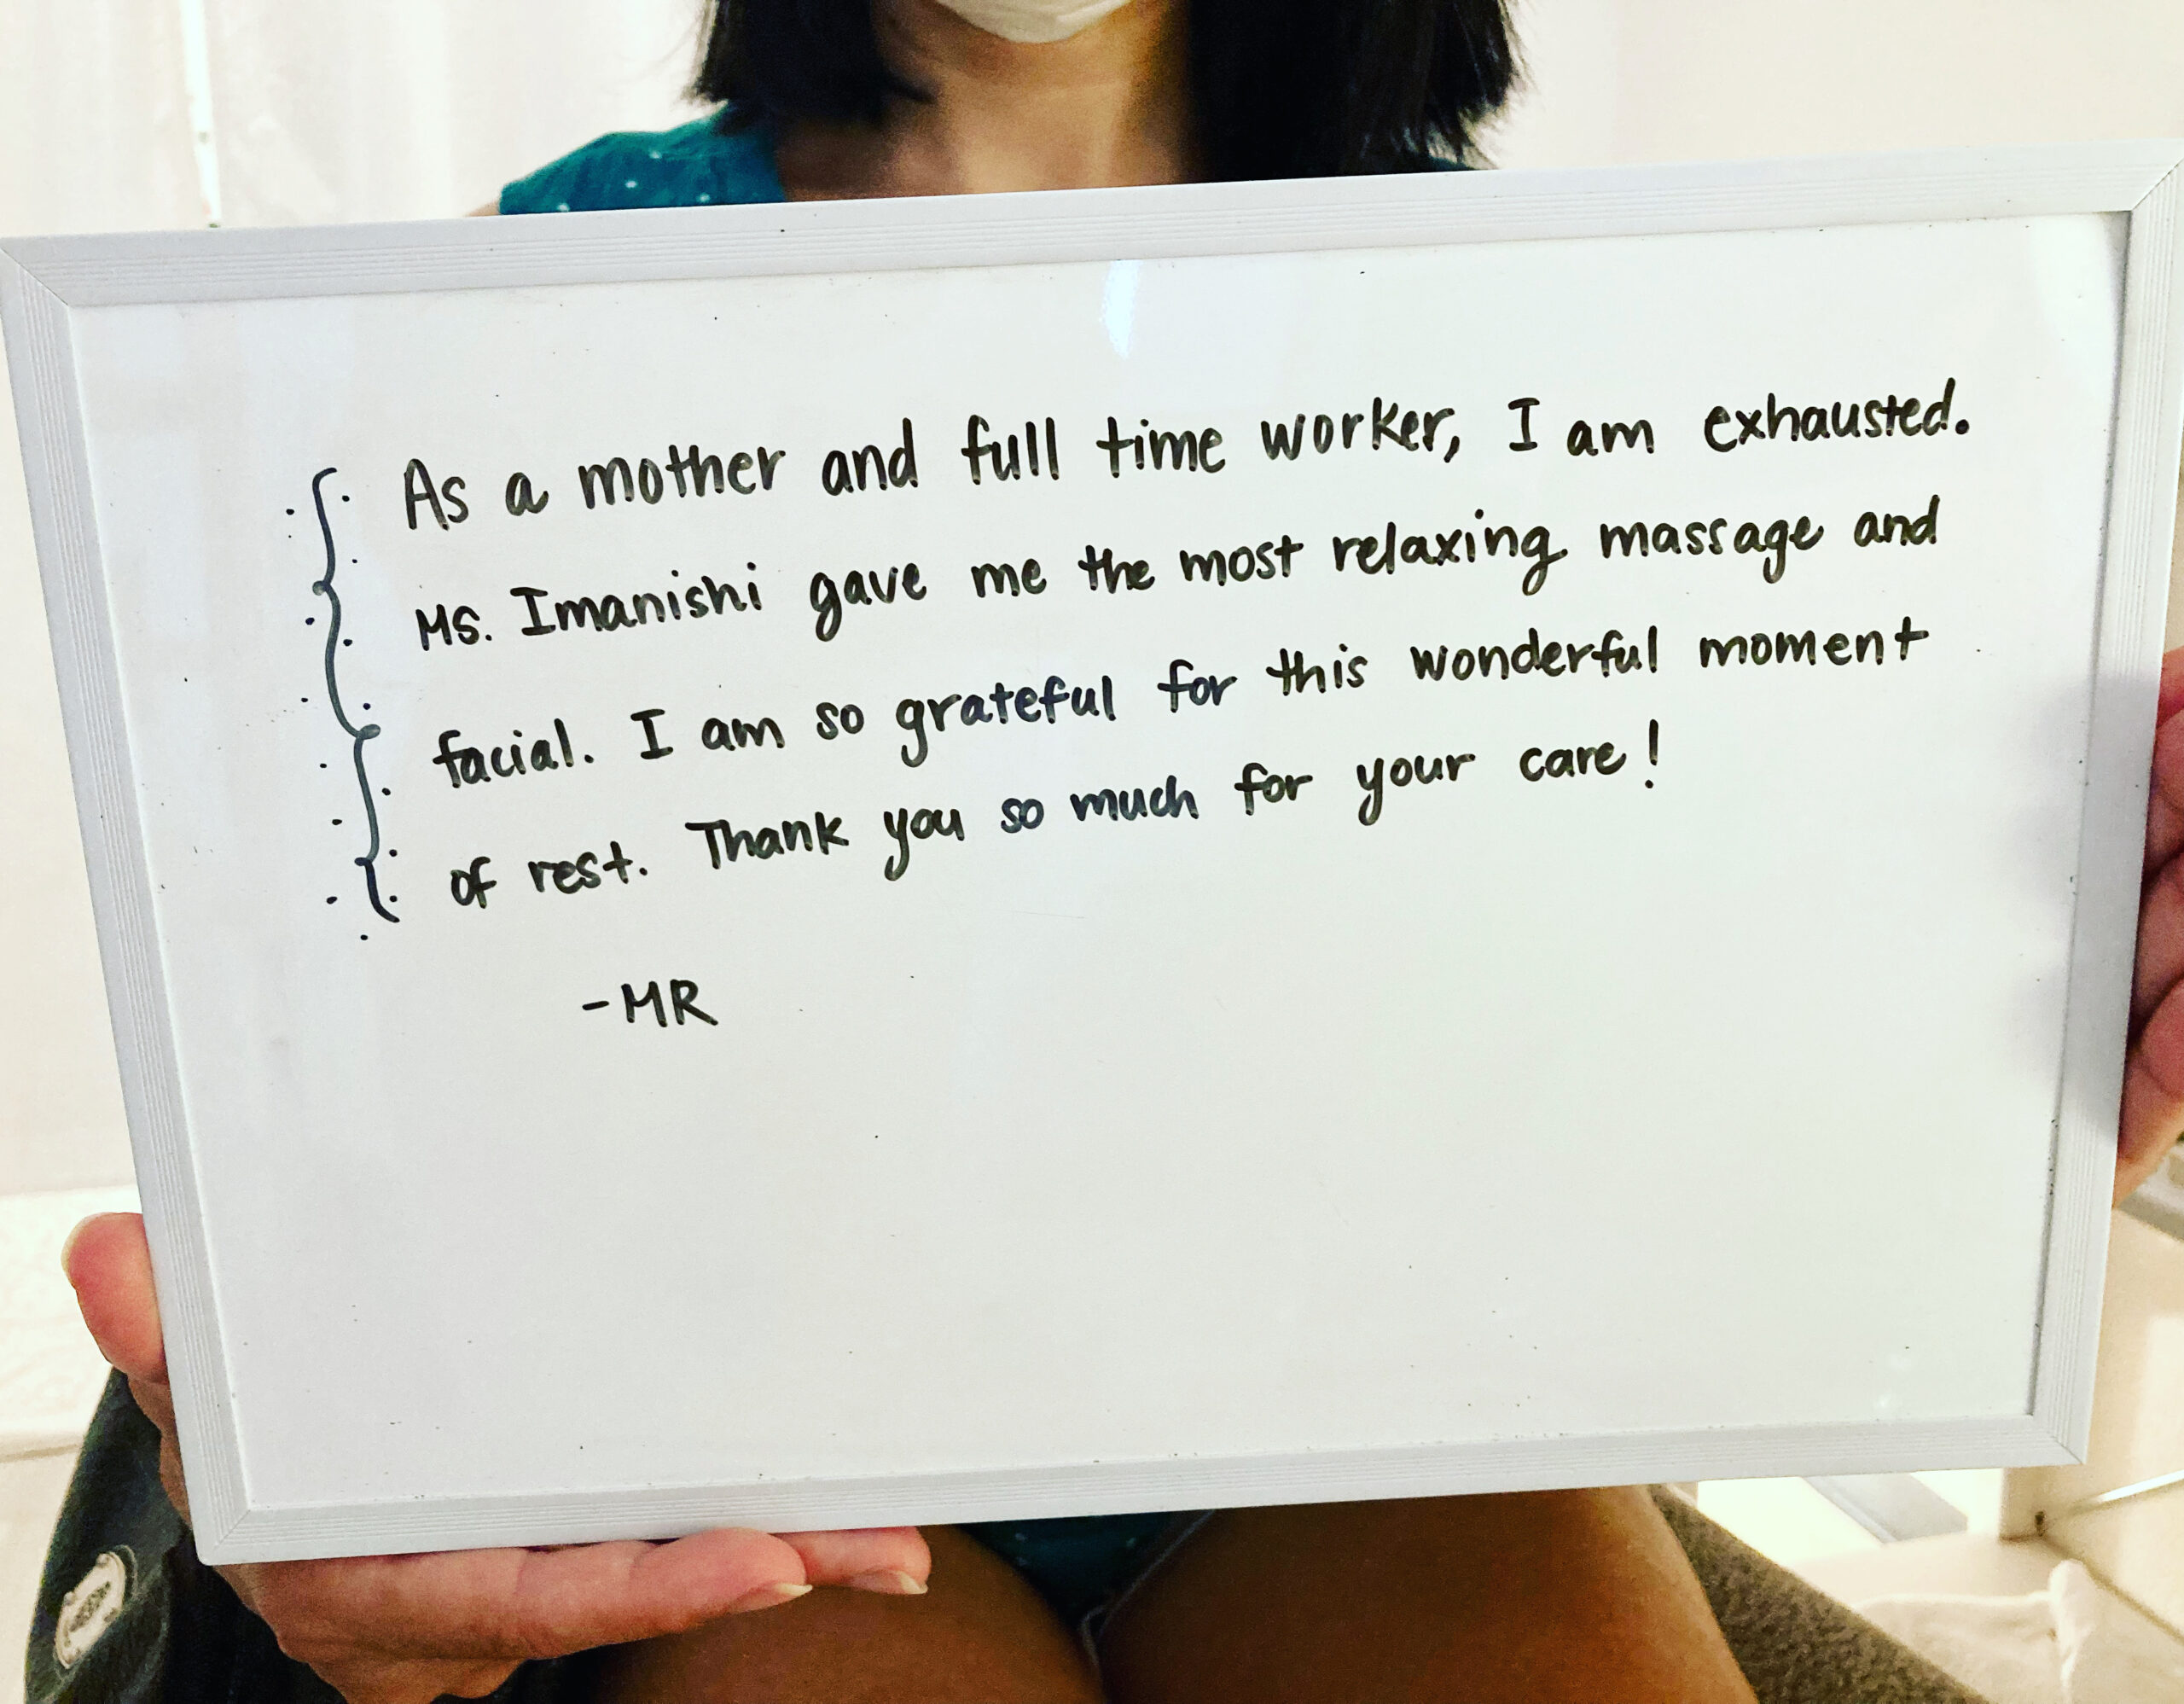 As a mother and full time worker, I am exhausted.
Ms. Imanishi gave me the most relaxing massage and
facial. I am so grateful for this wonderful moment
of rest. Thank you so much for your care!
-MR